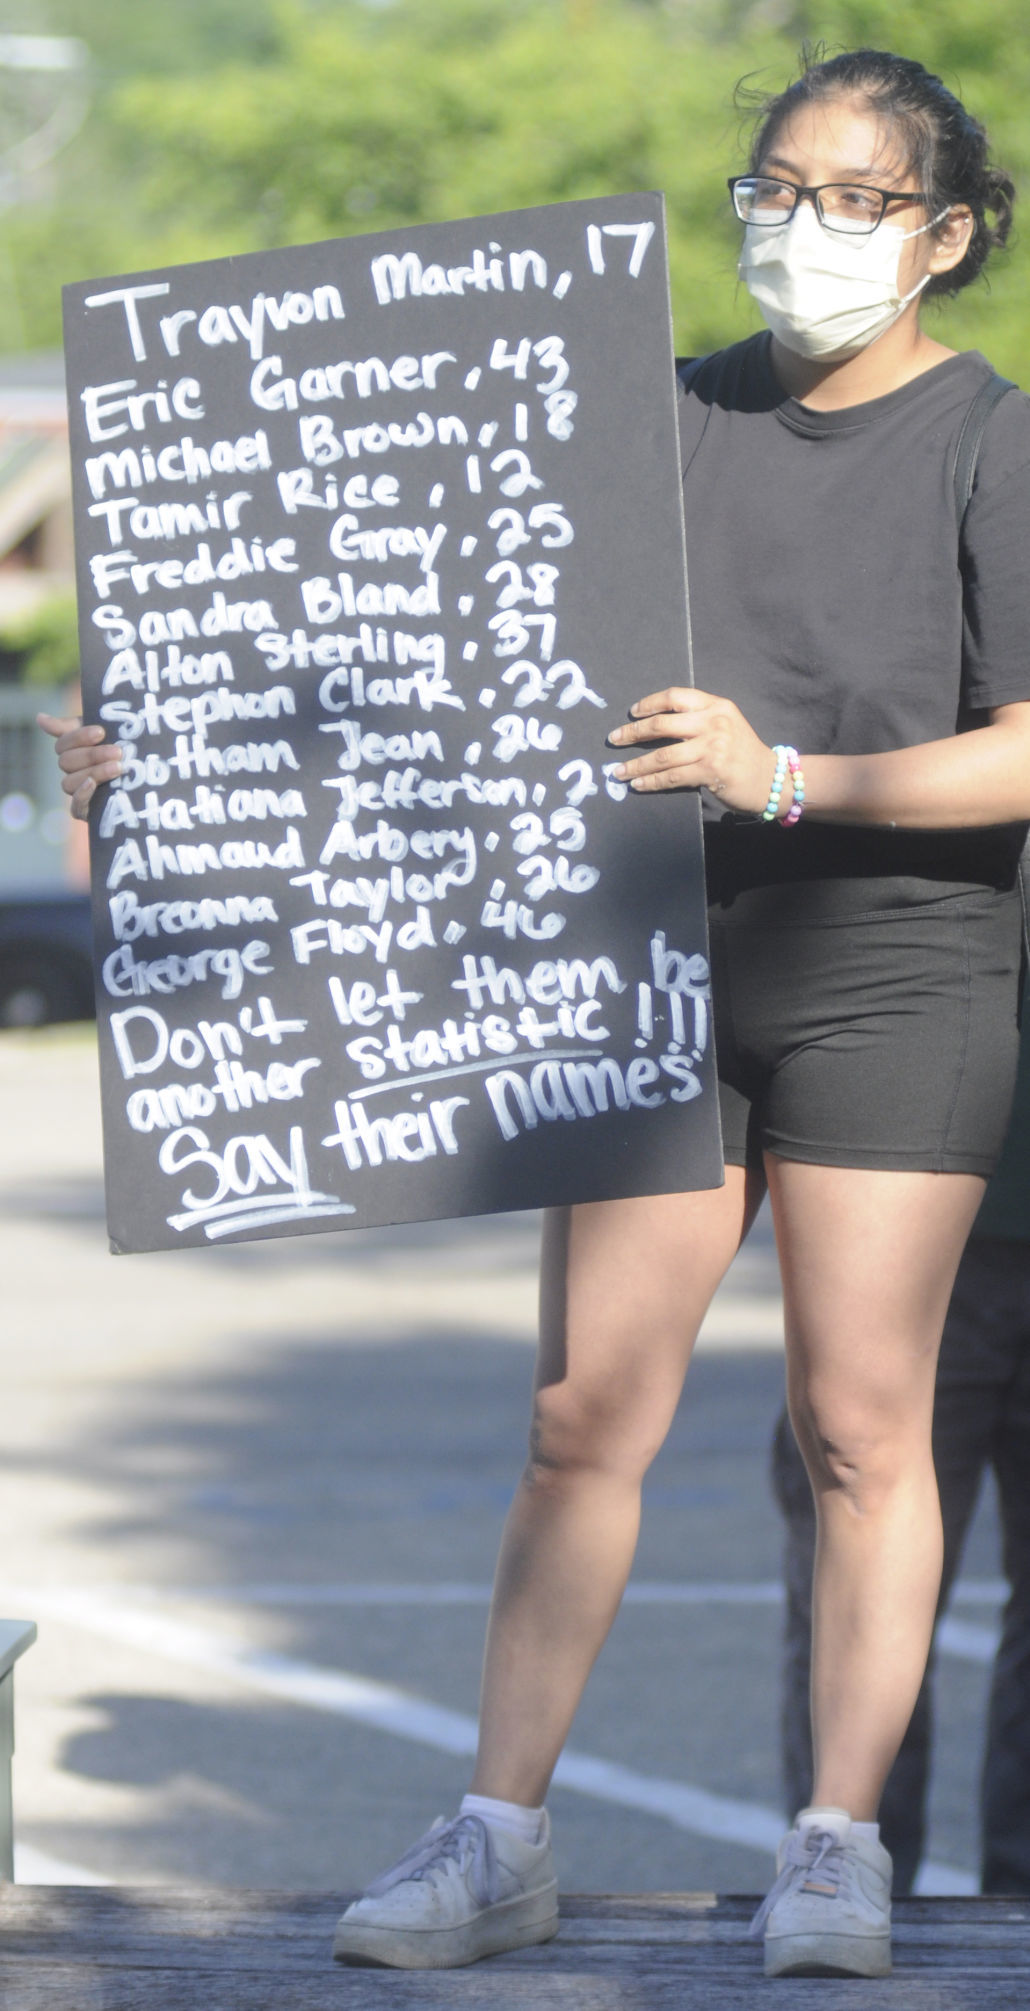 Trayvon Martin, 17
Eric Garner, 43
Michael Brown, 18
Tamir Rice, 12
Freddie Gray, 25
Sandra Bland, 28
Alton Sterling, 37
Stephon Clark, 22
Botham Jean, 26
Atatiana Jefferson, 2
Ahmaud Arbery, 25
Breonna Taylor, 26
George Floyd, 46
Don't let them be
another statistic!!!
Say their names